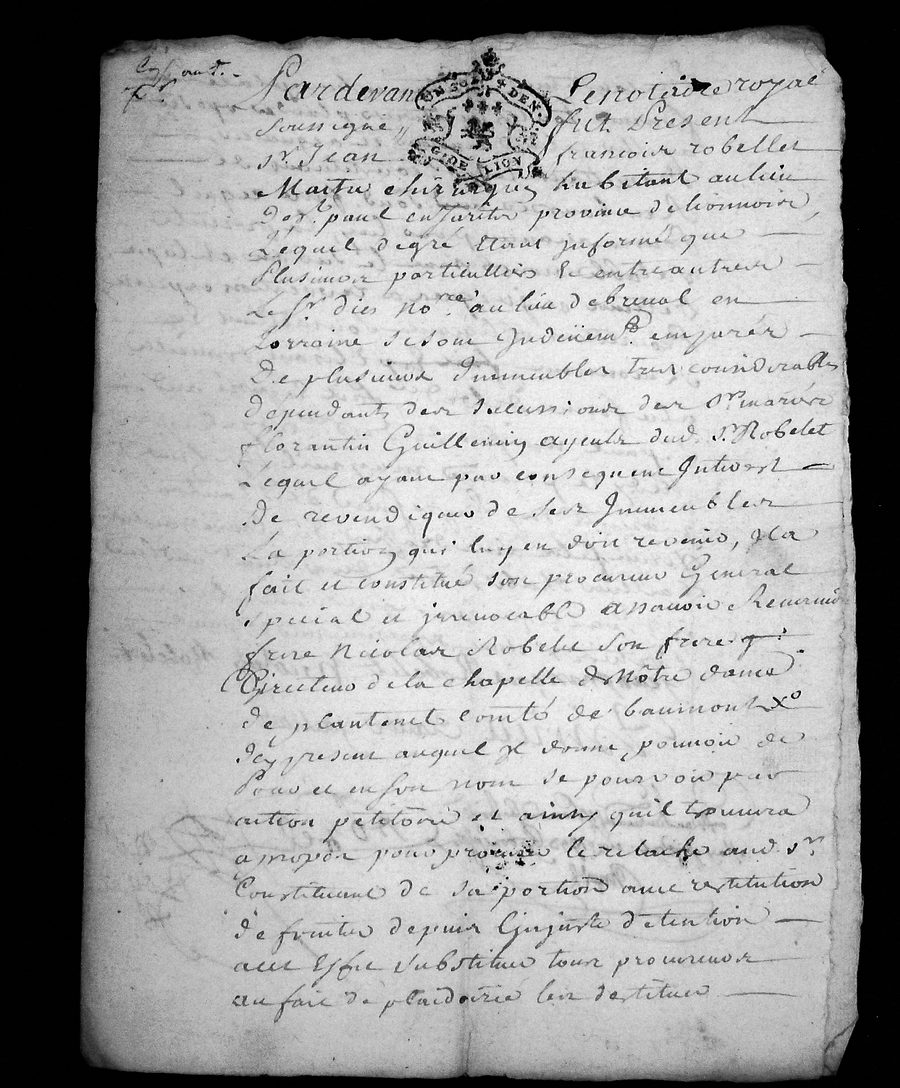 Pardevant Le notaire royal
UN SOL 4 DEN
G. DE LION
soussigné fut Present
sr Jean francois robellet
Maitre chirurgien habitant au lieu
de st paul en province de lionnois
Lequel degré Etant Informé que
Plusieurs particulliers & entreautres
Le sr dies nore au lieu debreual en
Lorraine se sont Induëmt emparés
De plusieurs Immeubles tres considerables
dependants des successions des
florantin Guillemin ayeuls dud. sr Robelet
Lequel ayant par consequent Interest
De revendiquer de ses Immeubles
La portion qui luy en doit revenir, Il a
fait et constitué son procureur General
special et irrevocable assavoir Reverend
frere Nicolas Robelet son frere
Directeur de la chapelle de Nôtre dame
de plantenet comté de baumont
Icy present auquel Il donne pouvoir de
Pour et en son nom se pourvoir par
action petitoire et ainsy quil trouvera
apropos pour procurer le relache aud. sr
Constituant de sa portion avec restitution
de fruits depuis L'injuste detention
acet Effet substituer tous procureurs
au fait de plaidoirie les destituer